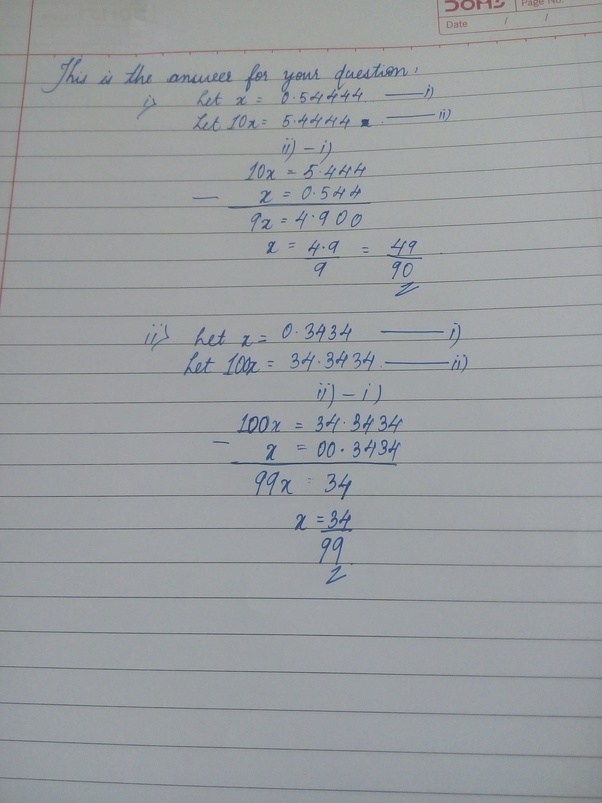 Page No.
Date / /
This is the answer for your question.
i) Let x = 0.54444 —— i)
Let 10x = 5.4444 —— ii)
ii) - i)
10x = 5.444
— x = 0.544
9x = 4.900
x = 4.9/9 = 49/90
ii) Let x = 0.3434 —— i)
Let 100x = 34.3434 —— ii)
ii) - i)
100x = 34.3434
— x = 00.3434
99x = 34
x = 34/99